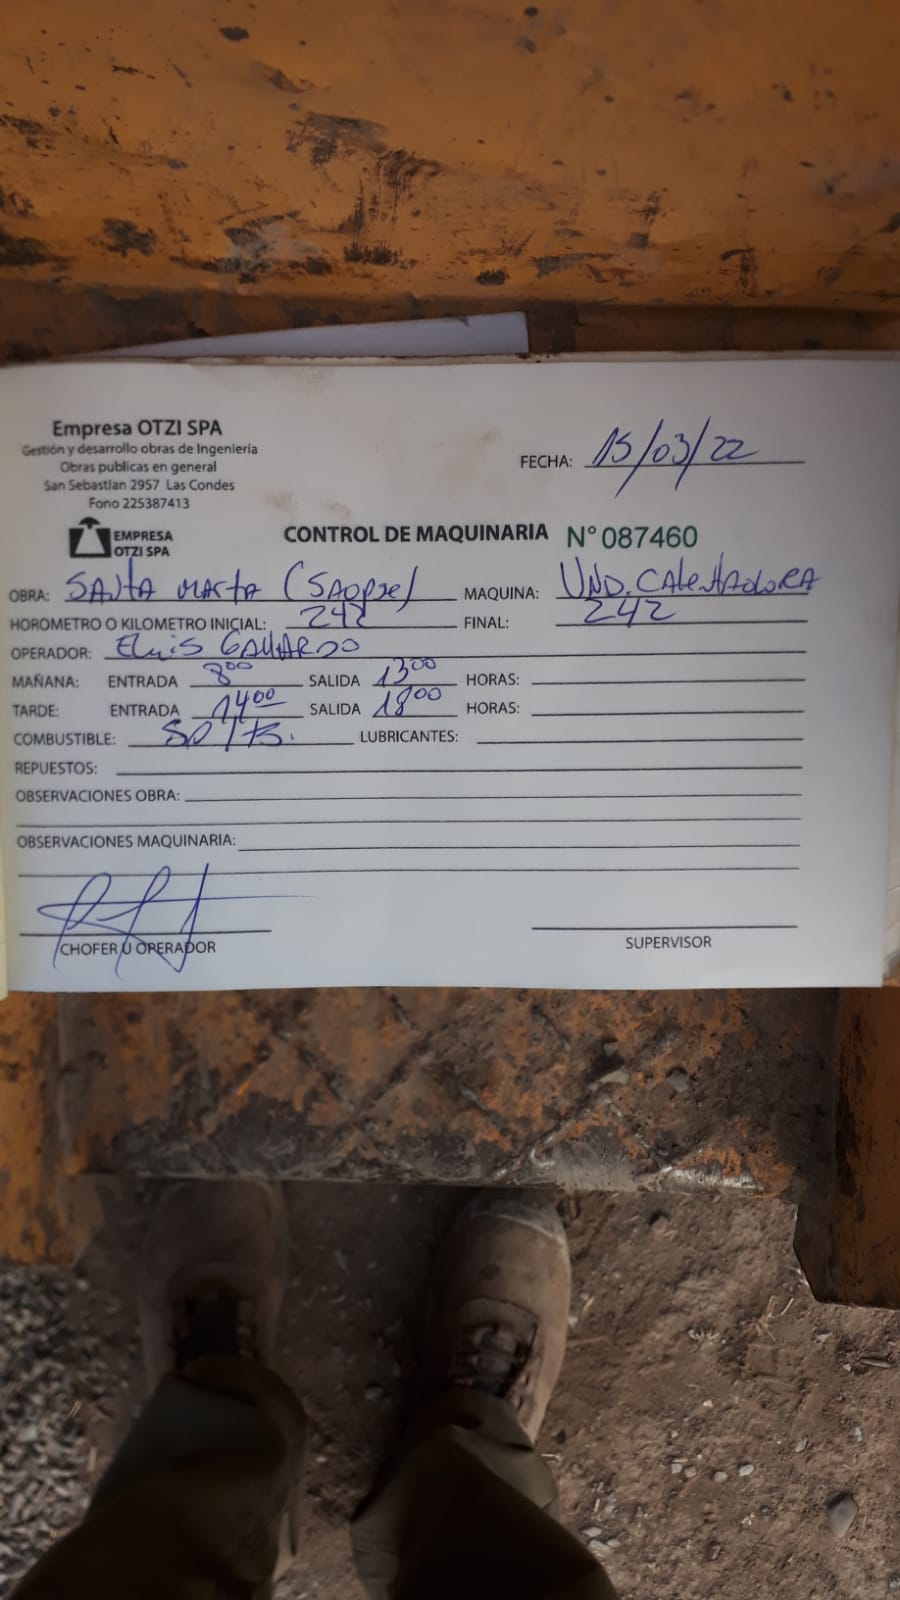 Empresa OTZI SPA
Gestión y desarrollo obras de Ingeniería
Obras publicas en general
San Sebastian 2957 Las Condes
Fono 225387413
FECHA: 15/03/22
EMPRESA
OTZI SPA
CONTROL DE MAQUINARIA N° 087460
OBRA: SANTA MARTA (SACPSE) MAQUINA: UND. CALENTADORA
HOROMETRO O KILOMETRO INICIAL: 242 FINAL: 242
OPERADOR: ELUIS GALLARDO
MAÑANA: ENTRADA 8:00 SALIDA 13:00 HORAS:
TARDE: ENTRADA 14:00 SALIDA 18:00 HORAS:
COMBUSTIBLE: 50 LTS. LUBRICANTES:
REPUESTOS:
OBSERVACIONES OBRA:
OBSERVACIONES MAQUINARIA:
CHOFER U OPERADOR
SUPERVISOR